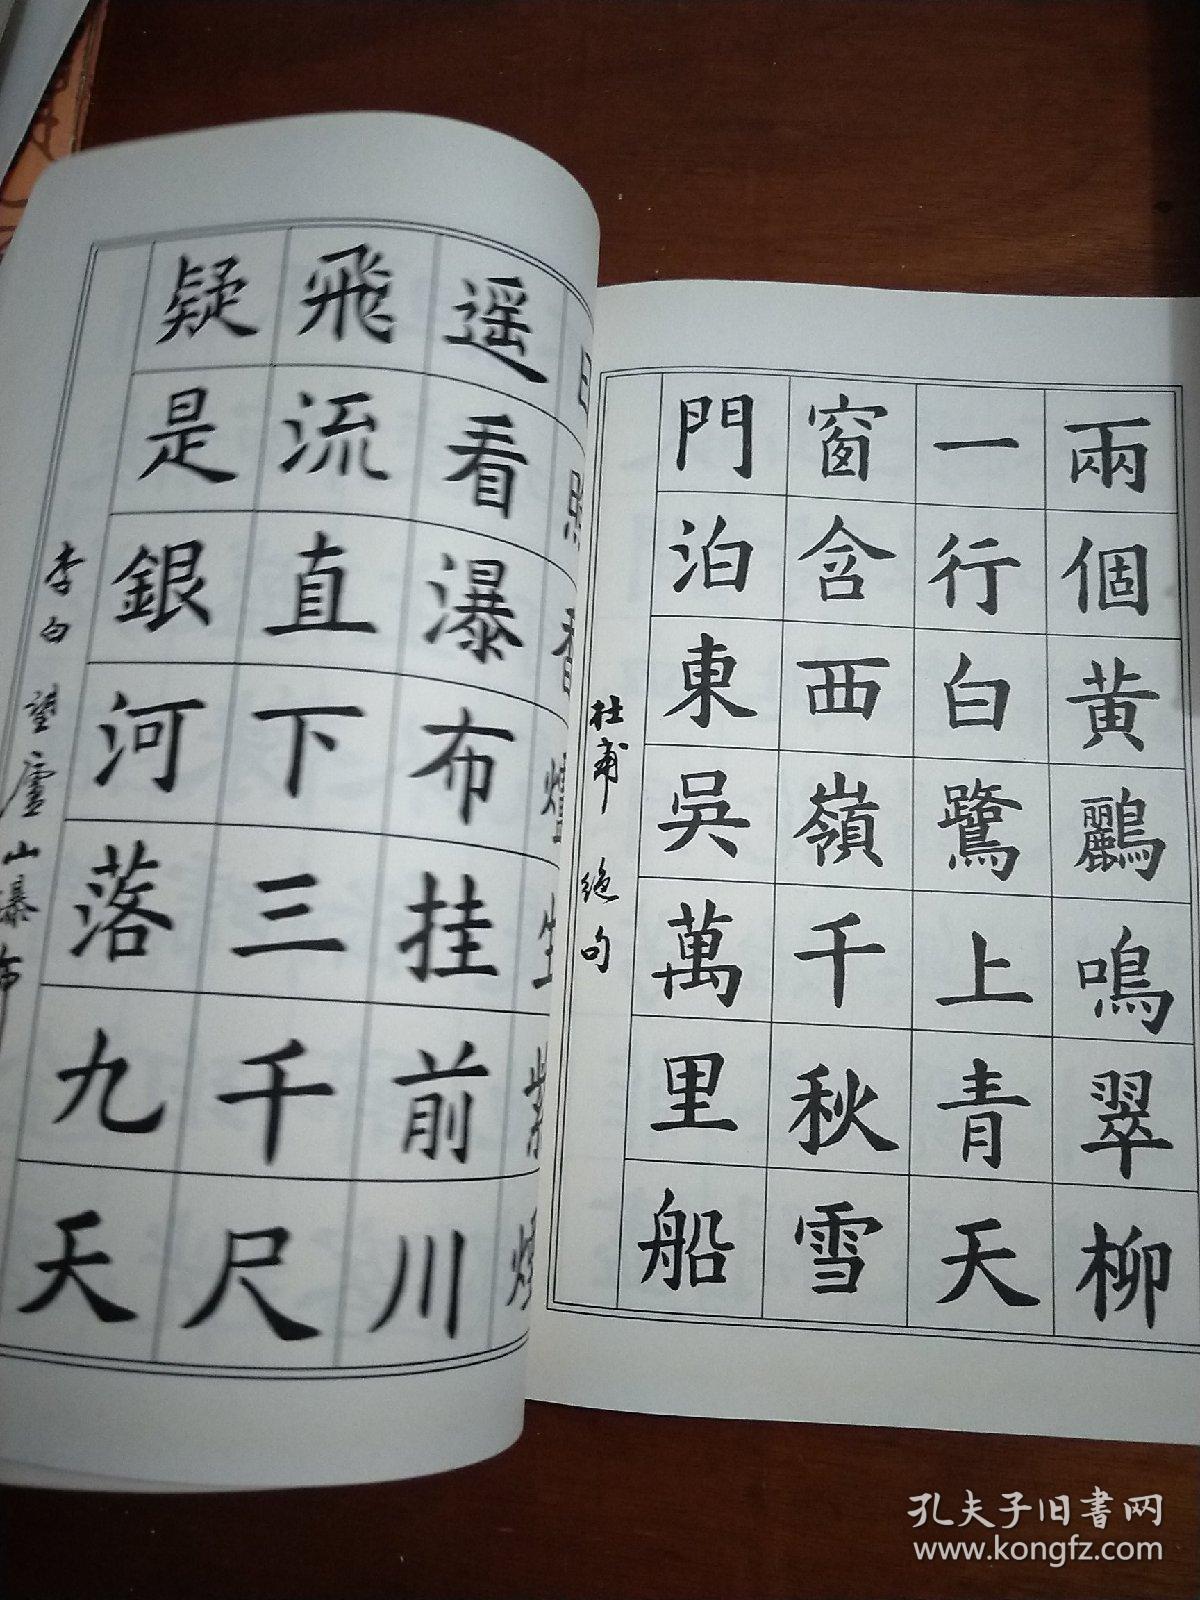 兩個黃鸝鳴翠柳
一行白鷺上青天
窗含西嶺千秋雪
門泊東吳萬里船
杜甫 绝句
日照香爐生紫煙
遥看瀑布挂前川
飛流直下三千尺
疑是銀河落九天
李白 望廬山瀑布
孔夫子旧书网
www.kongfz.com